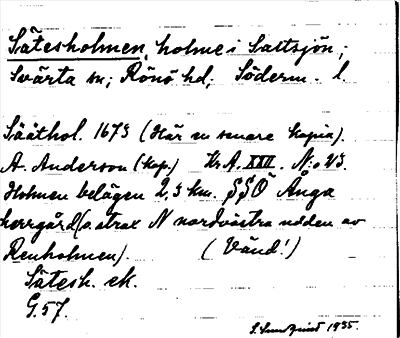 Sätesholmen, holme i Saltsjön,
Svärta sn; Rönö hd; Söderm. l.
Sääthol. 1673 (Här en senare kopia).
A. Anderson (kop.) Kr.A. XXII. N:o 23.
Holmen belägen 2,3 km. SSÖ Ånga
herrgård (o. strax N nordvästra udden av
Renholmen). (Vänd!)
Sätesh. ek.
G.57.
S. Sundqvist 1935.